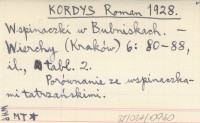 KORDYS Roman 1928.
Wspinaczki w Bubniskach. –
Wierchy (Kraków) 6: 80–88,
il., tabl. 2.
Porównanie ze wspinaczka-
mi tatrzańskimi.
MT*